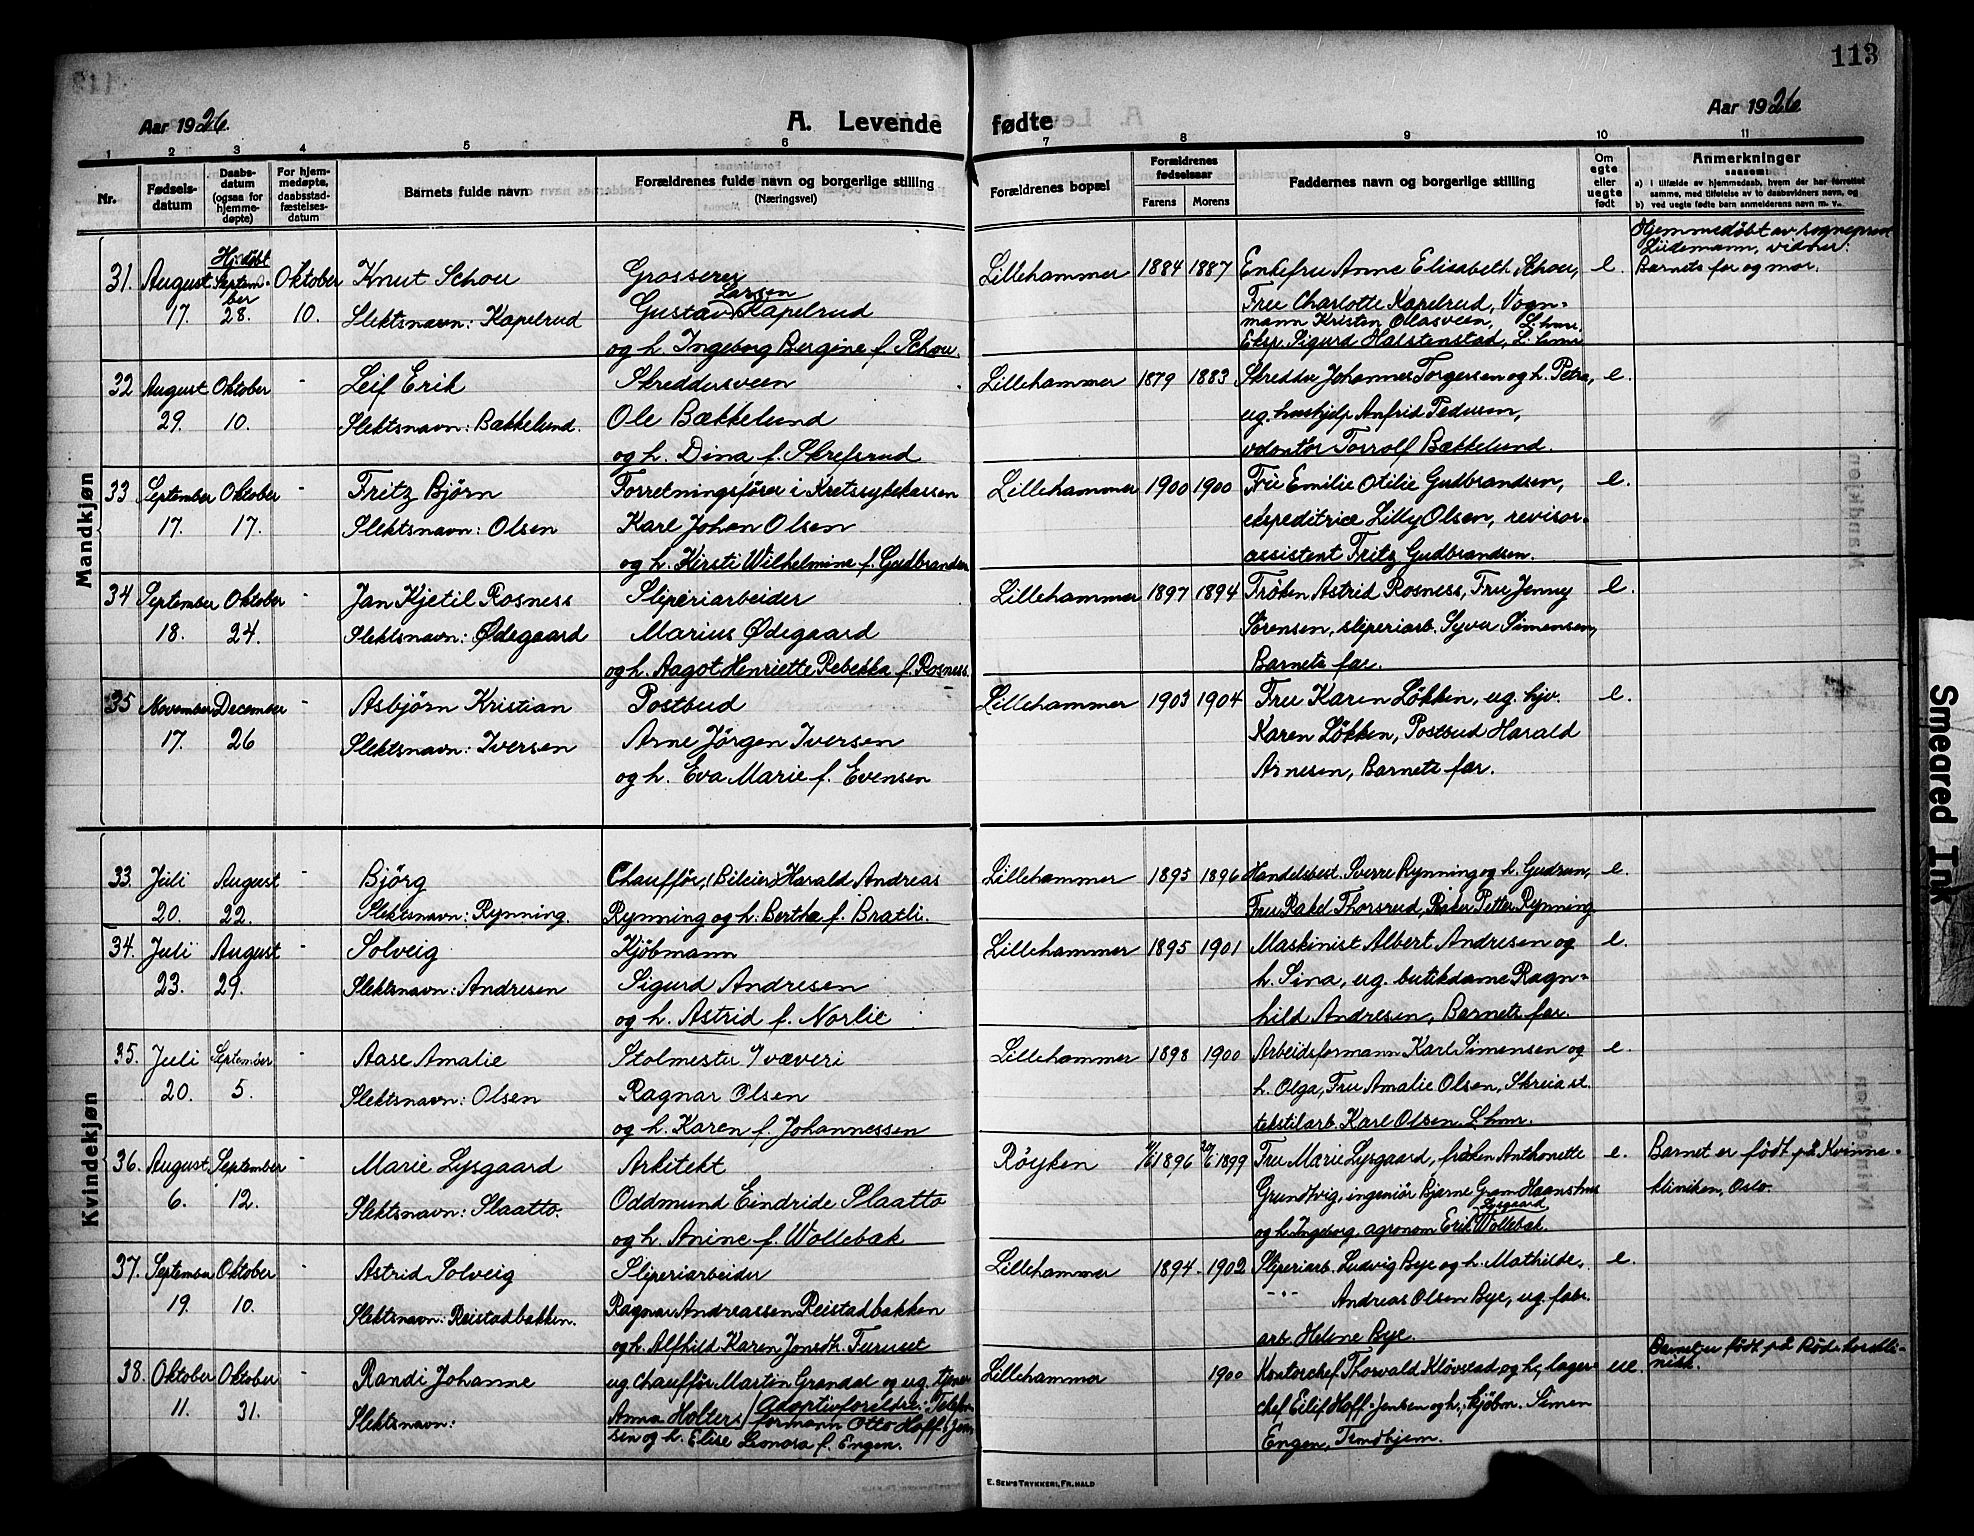 113
Aar 1926.
A. Levende fødte
Aar 1926
1 2 3 4 5 6 7 8 9 10 11
Nr.
Fødsels-
datum
Daabs-
datum
(ogsaa for
hjemme-
døpte)
For hjem-
medøpte,
daabsstad-
fæstelses-
datum
Barnets fulde navn
Forældrenes fulde navn og borgerlige stilling
(Næringsvei)
Forældrenes bopæl
Forældrenes
fødselsaar
Farens Morens
Faddernes navn og borgerlige stilling
Om
egte
eller
uegte
født
Anmerkninger
saasom:
a) i tilfælde av hjemmedaab, hvem der har forrettet
samme, med tilføielse av to daabsvidners navn, og
b) ved uegte fødte barn anmelderens navn m. v.
Mandkjøn
31. August 17. Hj.døbt September 28. Oktober 10.
Knut Schou
Slektsnavn: Kapelrud
Grosserer
Gustav Larsen Kapelrud
og h. Ingeborg Bergine f. Schou.
Lillehammer 1884 1887
Enkefru Anne Elisabeth Schou,
Frue Charlotte Kapelrud, Vogn-
mann Kristen Ollasveen, L.hmr,
Eksp. Sigurd Halstenstad, L.hmr
e.
Hjemmedøbt av sogneprest
Lüdemann, vidner:
Barnets far og mor.
32 August 29. Oktober 10. -
Leif Erik
Slektsnavn: Bækkelund.
Skreddersveen
Ole Bækkelund
og h. Dina f. Skrefsrud
Lillehammer 1879 1883
Skredder Johannes Torgersen og h. Petra,
ug. hushjelp Anfrid Pedersen,
volontør Torrolf Bækkelund.
e.
33 September 17. Oktober 17. -
Fritz Bjørn
Slektsnavn: Olsen
Forretningsfører i Kretssykekassen
Karl Johan Olsen
og h. Kirsti Wilhelmine f. Gudbrandsen
Lillehammer 1900 1900
Frue Emilie Otilie Gudbrandsen,
expeditrice Lilly Olsen, revisor-
assistent Fritz Gudbrandsen.
e.
34 September 18. Oktober 24. -
Jan Kjetil Rosness
Slektsnavn: Ødegaard
Sliperiarbeider
Marius Ødegaard
og h. Aagot Henriette Rebekka f. Rosness
Lillehammer 1897 1894
Frøken Astrid Rosness, Fru Jenny
Sørensen, sliperiarb. Syver Simensen,
Barnets far.
e.
35 November 17. December 26 -
Asbjørn Kristian
Slektsnavn: Iversen
Postbud
Arne Jörgen Iversen
og h. Eva Marie f. Evensen
Lillehammer 1903 1904
Fru Karen Løkken, ug. hjv.
Karen Løkken, Postbud Harald
Arnesen, Barnets far.
e.
Kvindekjøn
33. Juli 20. August 22. -
Bjørg
Slektsnavn: Rynning.
Chauffør, (Bileier) Harald Andreas
Rynning og h. Berthe f. Bratli.
Lillehammer 1895 1896
Handelsbest. Sverre Rynning og h. Gudrun,
Fru Rakel Thorsrud, Baker Petter Rynning
e.
34. Juli 23. August 29. -
Solveig
Slektsnavn: Andresen
Kjøbmann
Sigurd Andresen
og h. Astrid f. Norlie
Lillehammer 1895 1901
Maskinist Albert Andresen og
h. Sina, ug. butikdame Ragn-
hild Andresen, Barnets far.
e.
35. Juli 20. September 5. -
Aase Amalie
Slektsnavn: Olsen
Stolmester v/ væveri
Ragnar Olsen
og h. Karen f. Johannessen
Lillehammer 1898 1900
Arbeidsformann Karl Simensen og
h. Olga, Fru Amalie Olsen, Skreia st.
tekstilarb. Karl Olsen L.hmr.
e.
36. August 6. September 12. -
Marie Lysgaard
Slektsnavn: Slaatto.
Arkitekt
Oddmund Eindride Slaatto
og h. Anine f. Wollebæk
Røyken 1896 1899
Fru Marie Lysgaard, frøken Anthonette
Grundtvig, ingeniør Bjarne Gram Haanshus
og h. Ingeborg, agronom Erik Lysgaard Wollebæk
e.
Barnet er født på Kvinne-
klinikken, Oslo.
37. September 19. Oktober 10. -
Astrid Solveig
Slektsnavn: Reistadbakken.
Sliperiarbeider
Ragnvar Andreassen Reistadbakken
og h. Alfhild Karen Jonsdt. Furuset
Lillehammer 1894 - 1902
Sliperiarb. Ludvig Bye og h. Mathilde,
-"- Andreas Olsen Bye, ug. fabr.
arb. Helene Bye.
e.
38. Oktober 11. Oktober 31. -
Randi Johanne
Slektsnavn:
ug. chauffør Martin Grandal og ug. tjener
Anna Holters / Adoptivforeldre: Telefon-
formann Otto Hoff-Jen-
sen og h. Elise Leonora f. Engen.
Lillehammer 1900
Kontorchef Thorvald Kløvstad og h., lager-
chef Eilif Hoff-Jensen og h., kjøbm. Simen
Engen, Trondhjem.
ue.
Barnet er født på Røde kors kli-
nikk.
E. SEM'S TRYKKERI, FR.HALD
Smeared Ink